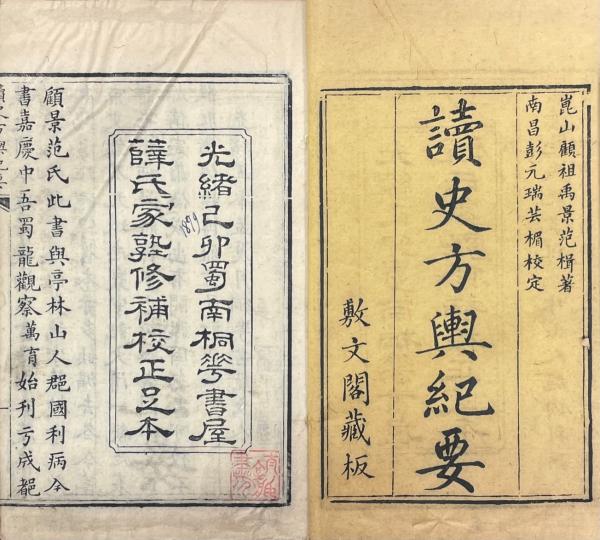 崑山顧祖禹景范楫著
南昌彭元瑞芸楣校定
讀史方輿紀要
敷文閣藏板
光緒己卯蜀南桐華書屋
薛氏家塾修補校正足本
1879
顧景范氏此書與亭林山人郡國利病全
書嘉慶中吾蜀龍觀察萬育始刊于成都